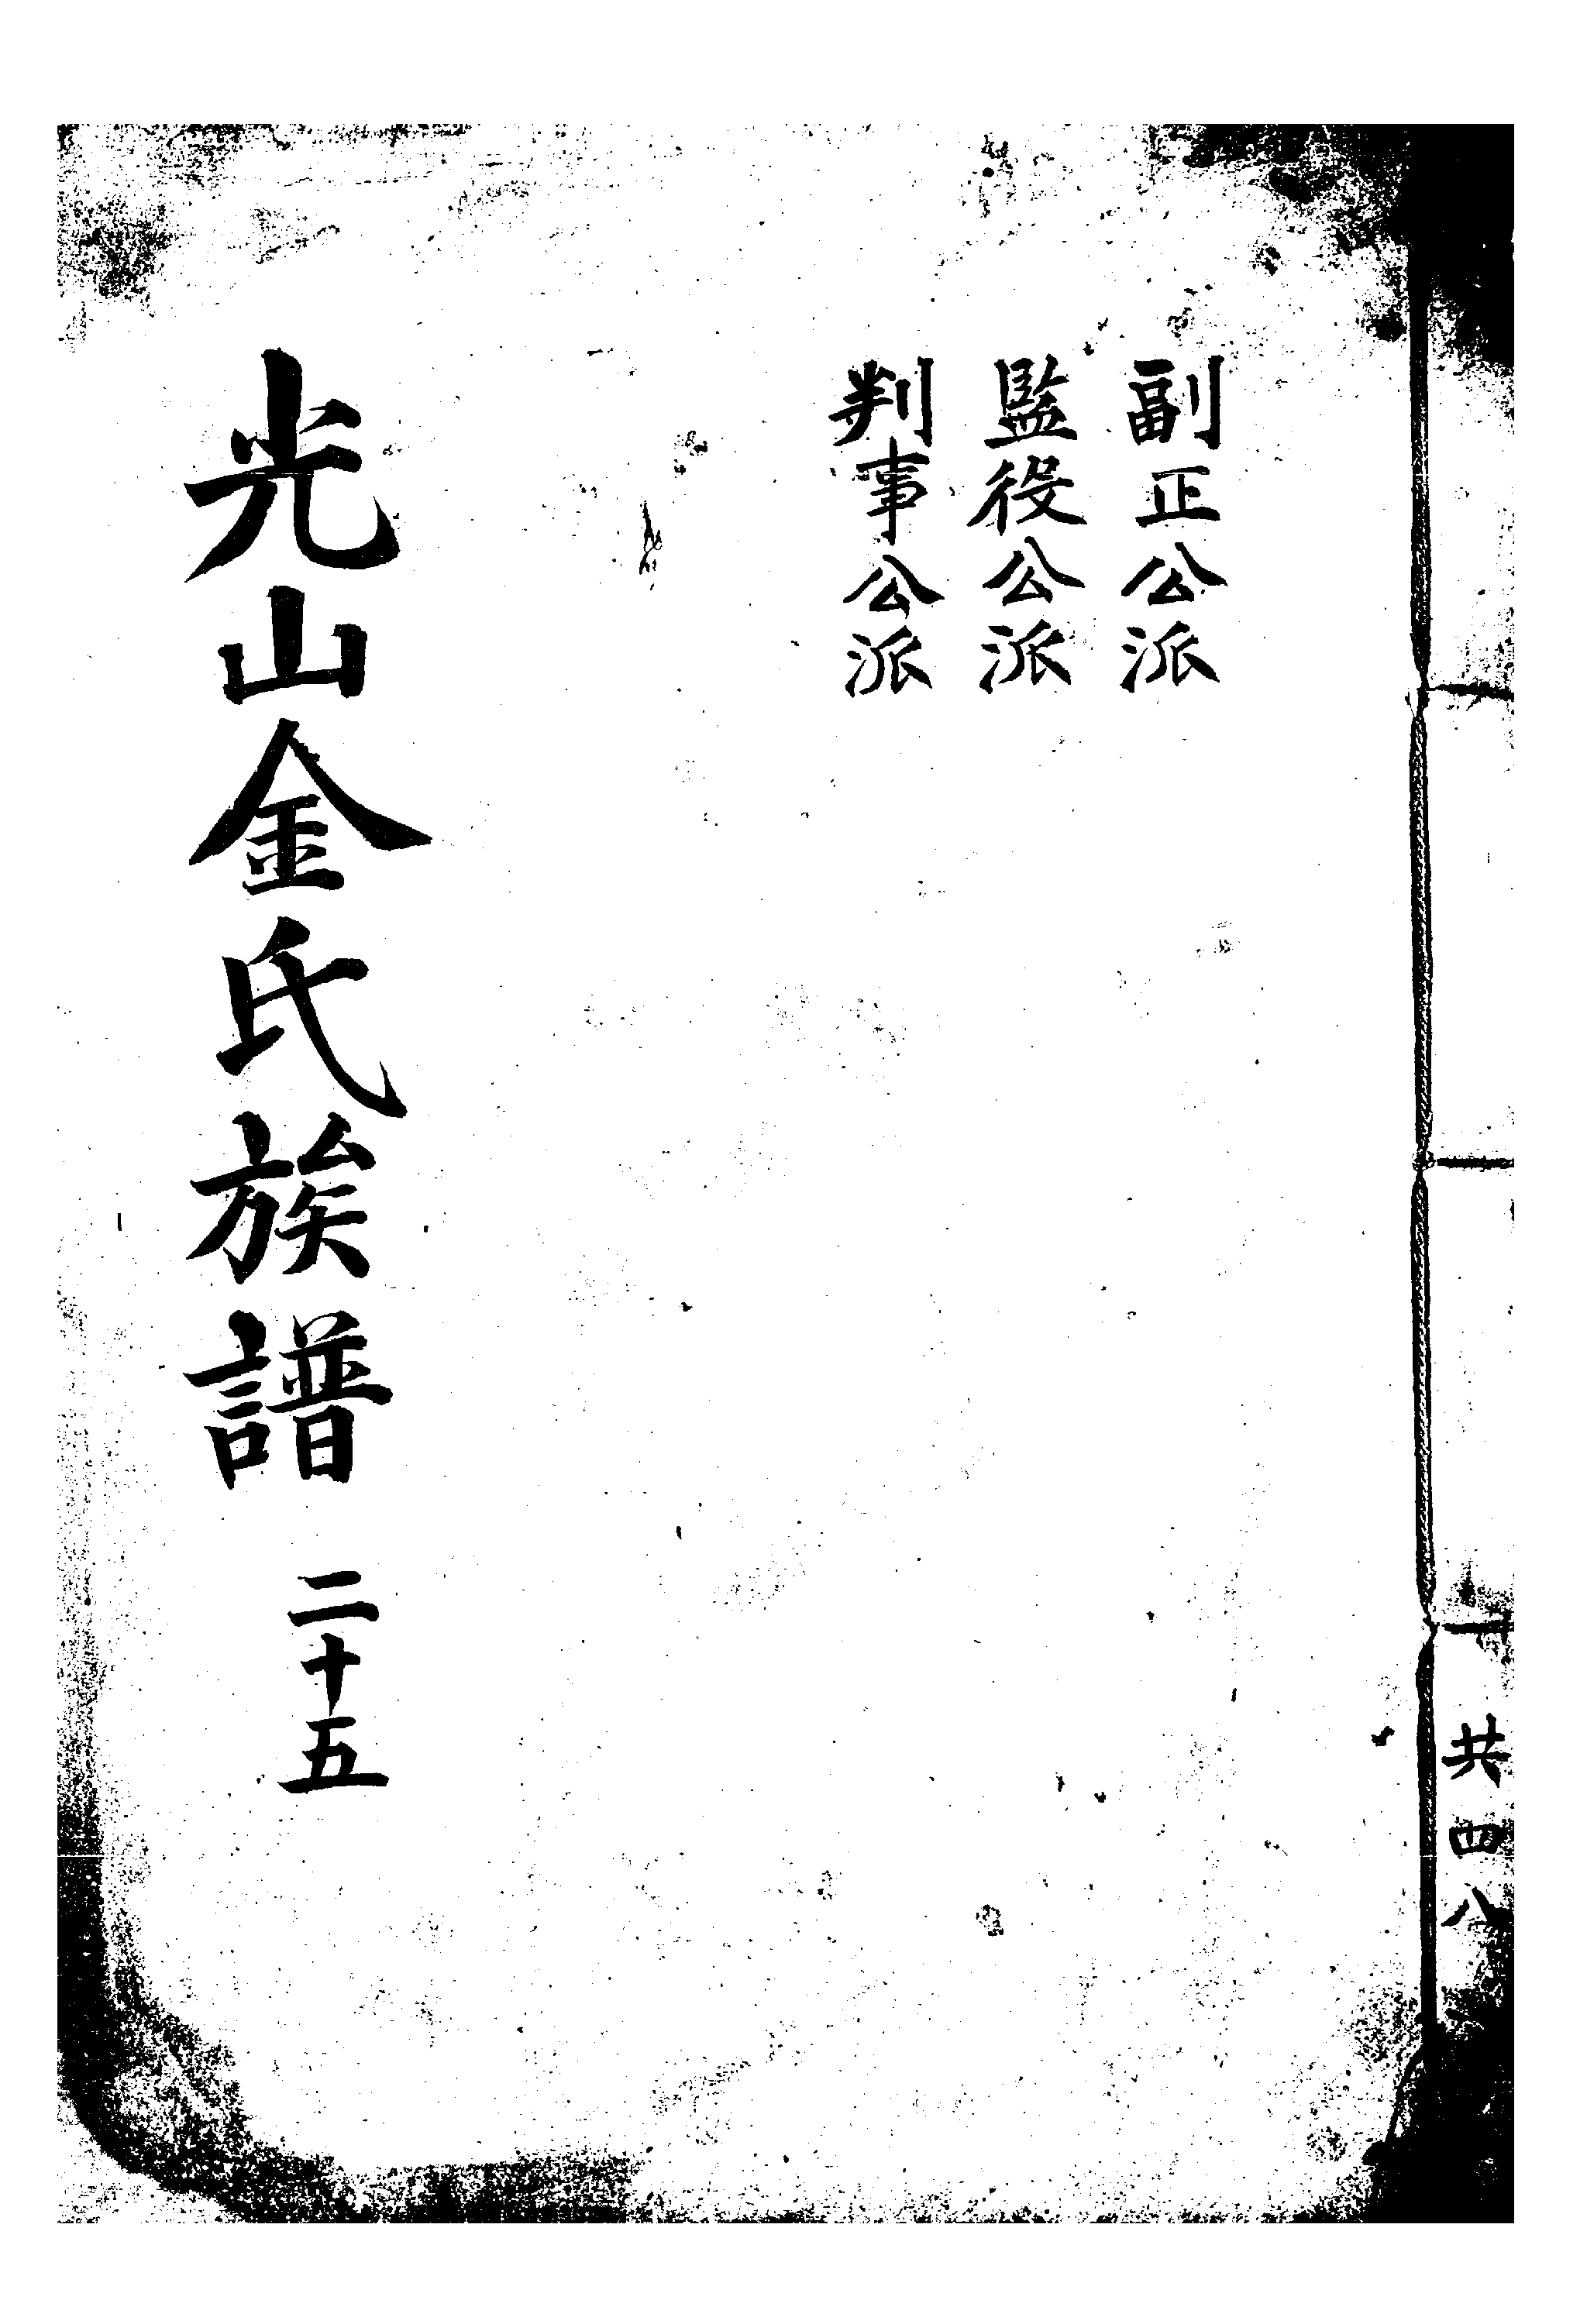 共四八
副正公派
監役公派
判事公派
光山金氏族譜 二十五